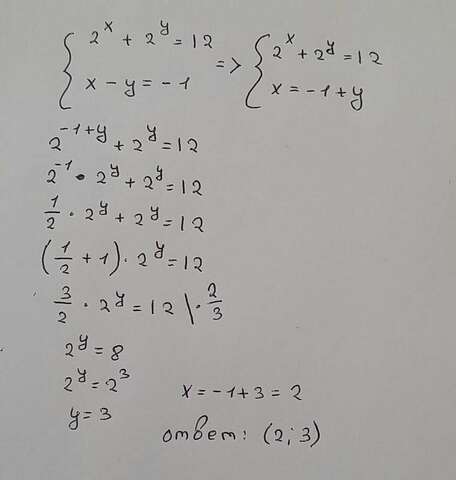 { 2^x + 2^y = 12 => { 2^x + 2^y = 12
{ x - y = -1 { x = -1 + y
2^(-1+y) + 2^y = 12
2^(-1) • 2^y + 2^y = 12
1/2 · 2^y + 2^y = 12
(1/2 + 1) · 2^y = 12
3/2 · 2^y = 12 \· 2/3
2^y = 8
2^y = 2^3
y = 3
x = -1 + 3 = 2
ответ: (2; 3)